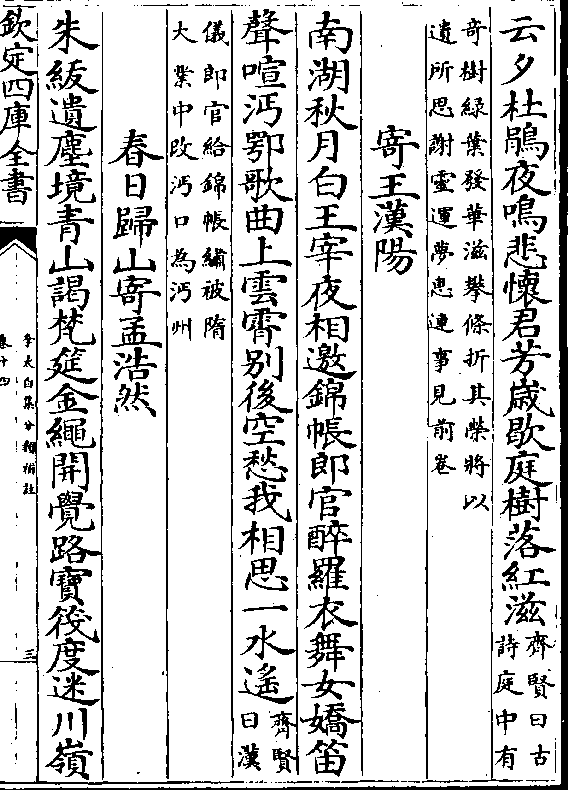 云夕杜鵑夜鳴悲懷君芳歲歇庭樹落紅滋齊賢曰古
詩庭中有
奇樹緑葉發華滋攀條折其榮將以
遺所思謝靈運夢惠連事見前卷
寄王漢陽
南湖秋月白王宰夜相邀錦帳郎官醉羅衣舞女嬌笛
聲喧沔鄂歌曲上雲霄别後空愁我相思一水遙齊賢
曰漢
儀郎官給錦帳繡被隋
大業中改沔口為沔州
春日歸山寄孟浩然
朱紱遺塵境青山謁梵筵金繩開覺路寶筏度迷川嶺
欽定四庫全書
李太白集分類補註
卷十四
三